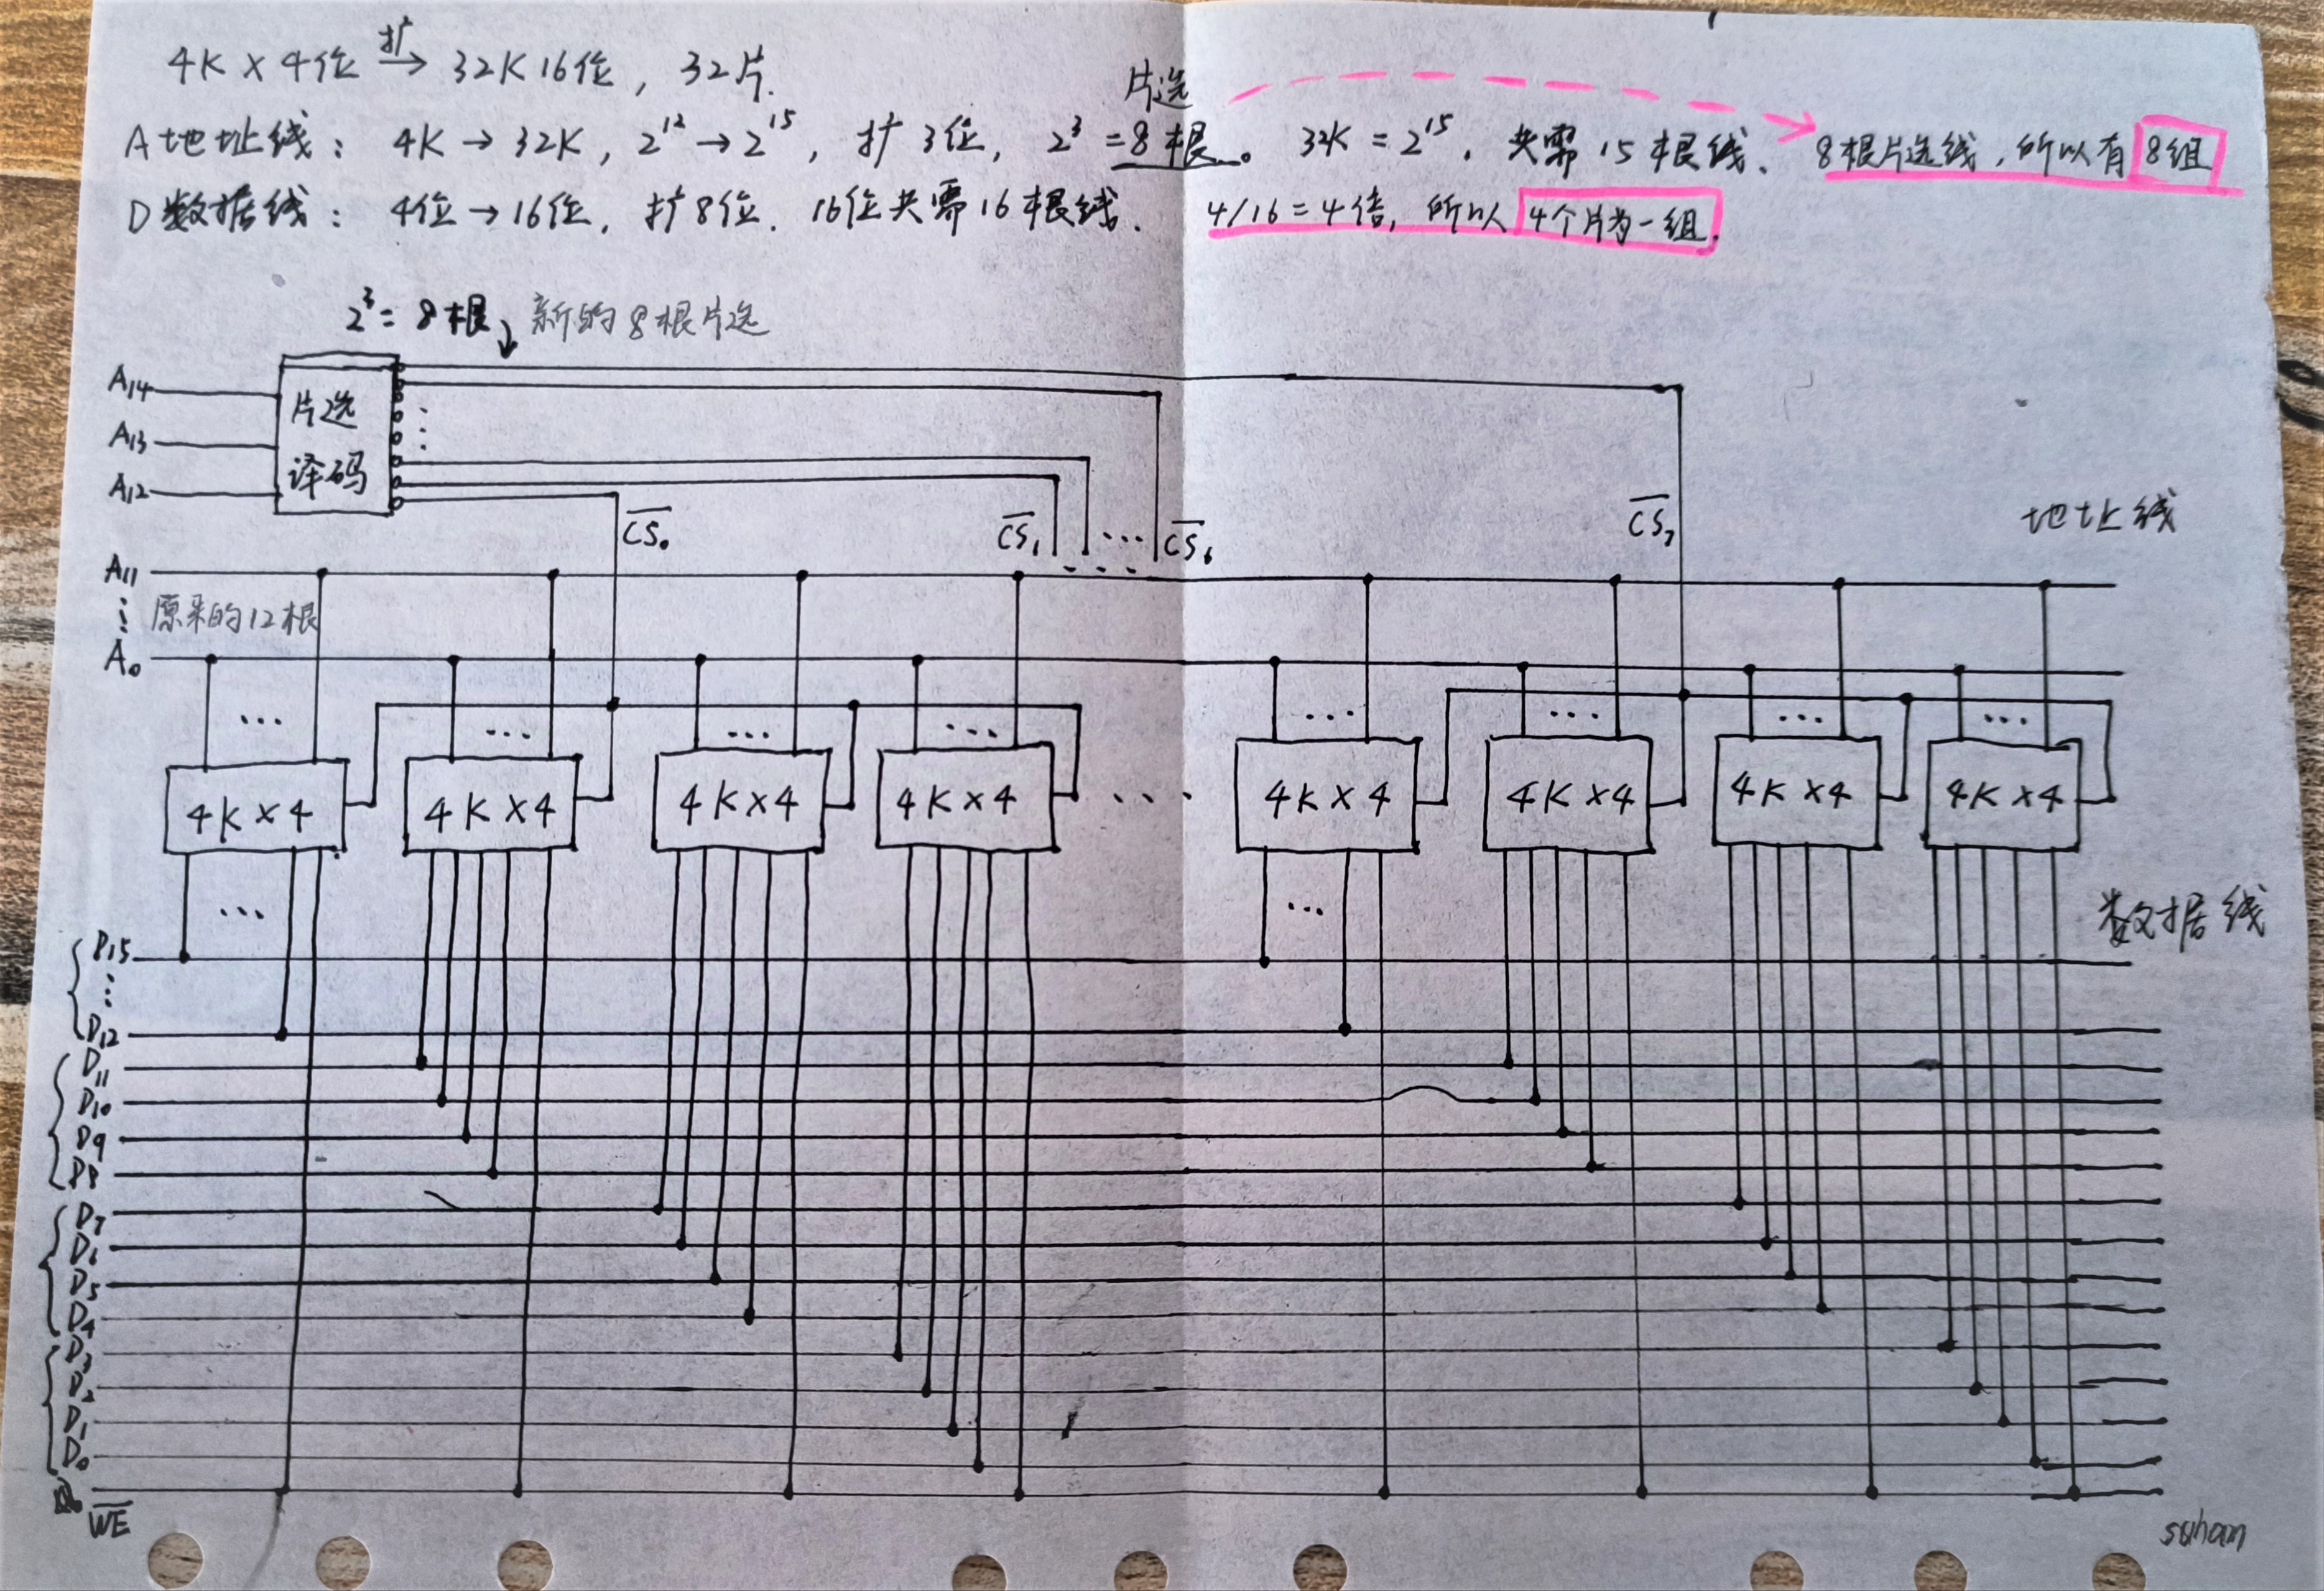 4K×4位 扩→ 32K16位，32片.
片选
A地址线： 4K→32K，2¹²→2¹⁵，扩3位，2³=8根。 32K=2¹⁵，共需15根线、 8根片选线，所以有8组
D数据线： 4位→16位，扩8位．16位共需16根线． 4/16=4倍，所以4个片为一组．
2³=8根 新的8根片选
A₁₄
片选
A₁₃
译码
A₁₂
C̅S̅₀ C̅S̅₁ ... C̅S̅₆ C̅S̅₇
地址线
A₁₁
⋮ 原来的12根
A₀
... ... ... ... ... ... ... ...
4K×4 4K×4 4K×4 4K×4 ... 4K×4 4K×4 4K×4 4K×4
... ...
数据线
D₁₅
⋮
D₁₂
D₁₁
D₁₀
D₉
D₈
D₇
D₆
D₅
D₄
D₃
D₂
D₁
D₀
W̅E̅
suhan